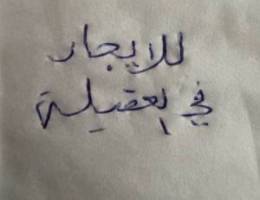 للايجار
في العقيلة